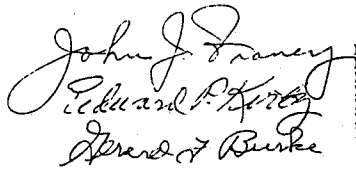 John J. Franey
Edward P. Kirby
Gerard F Burke